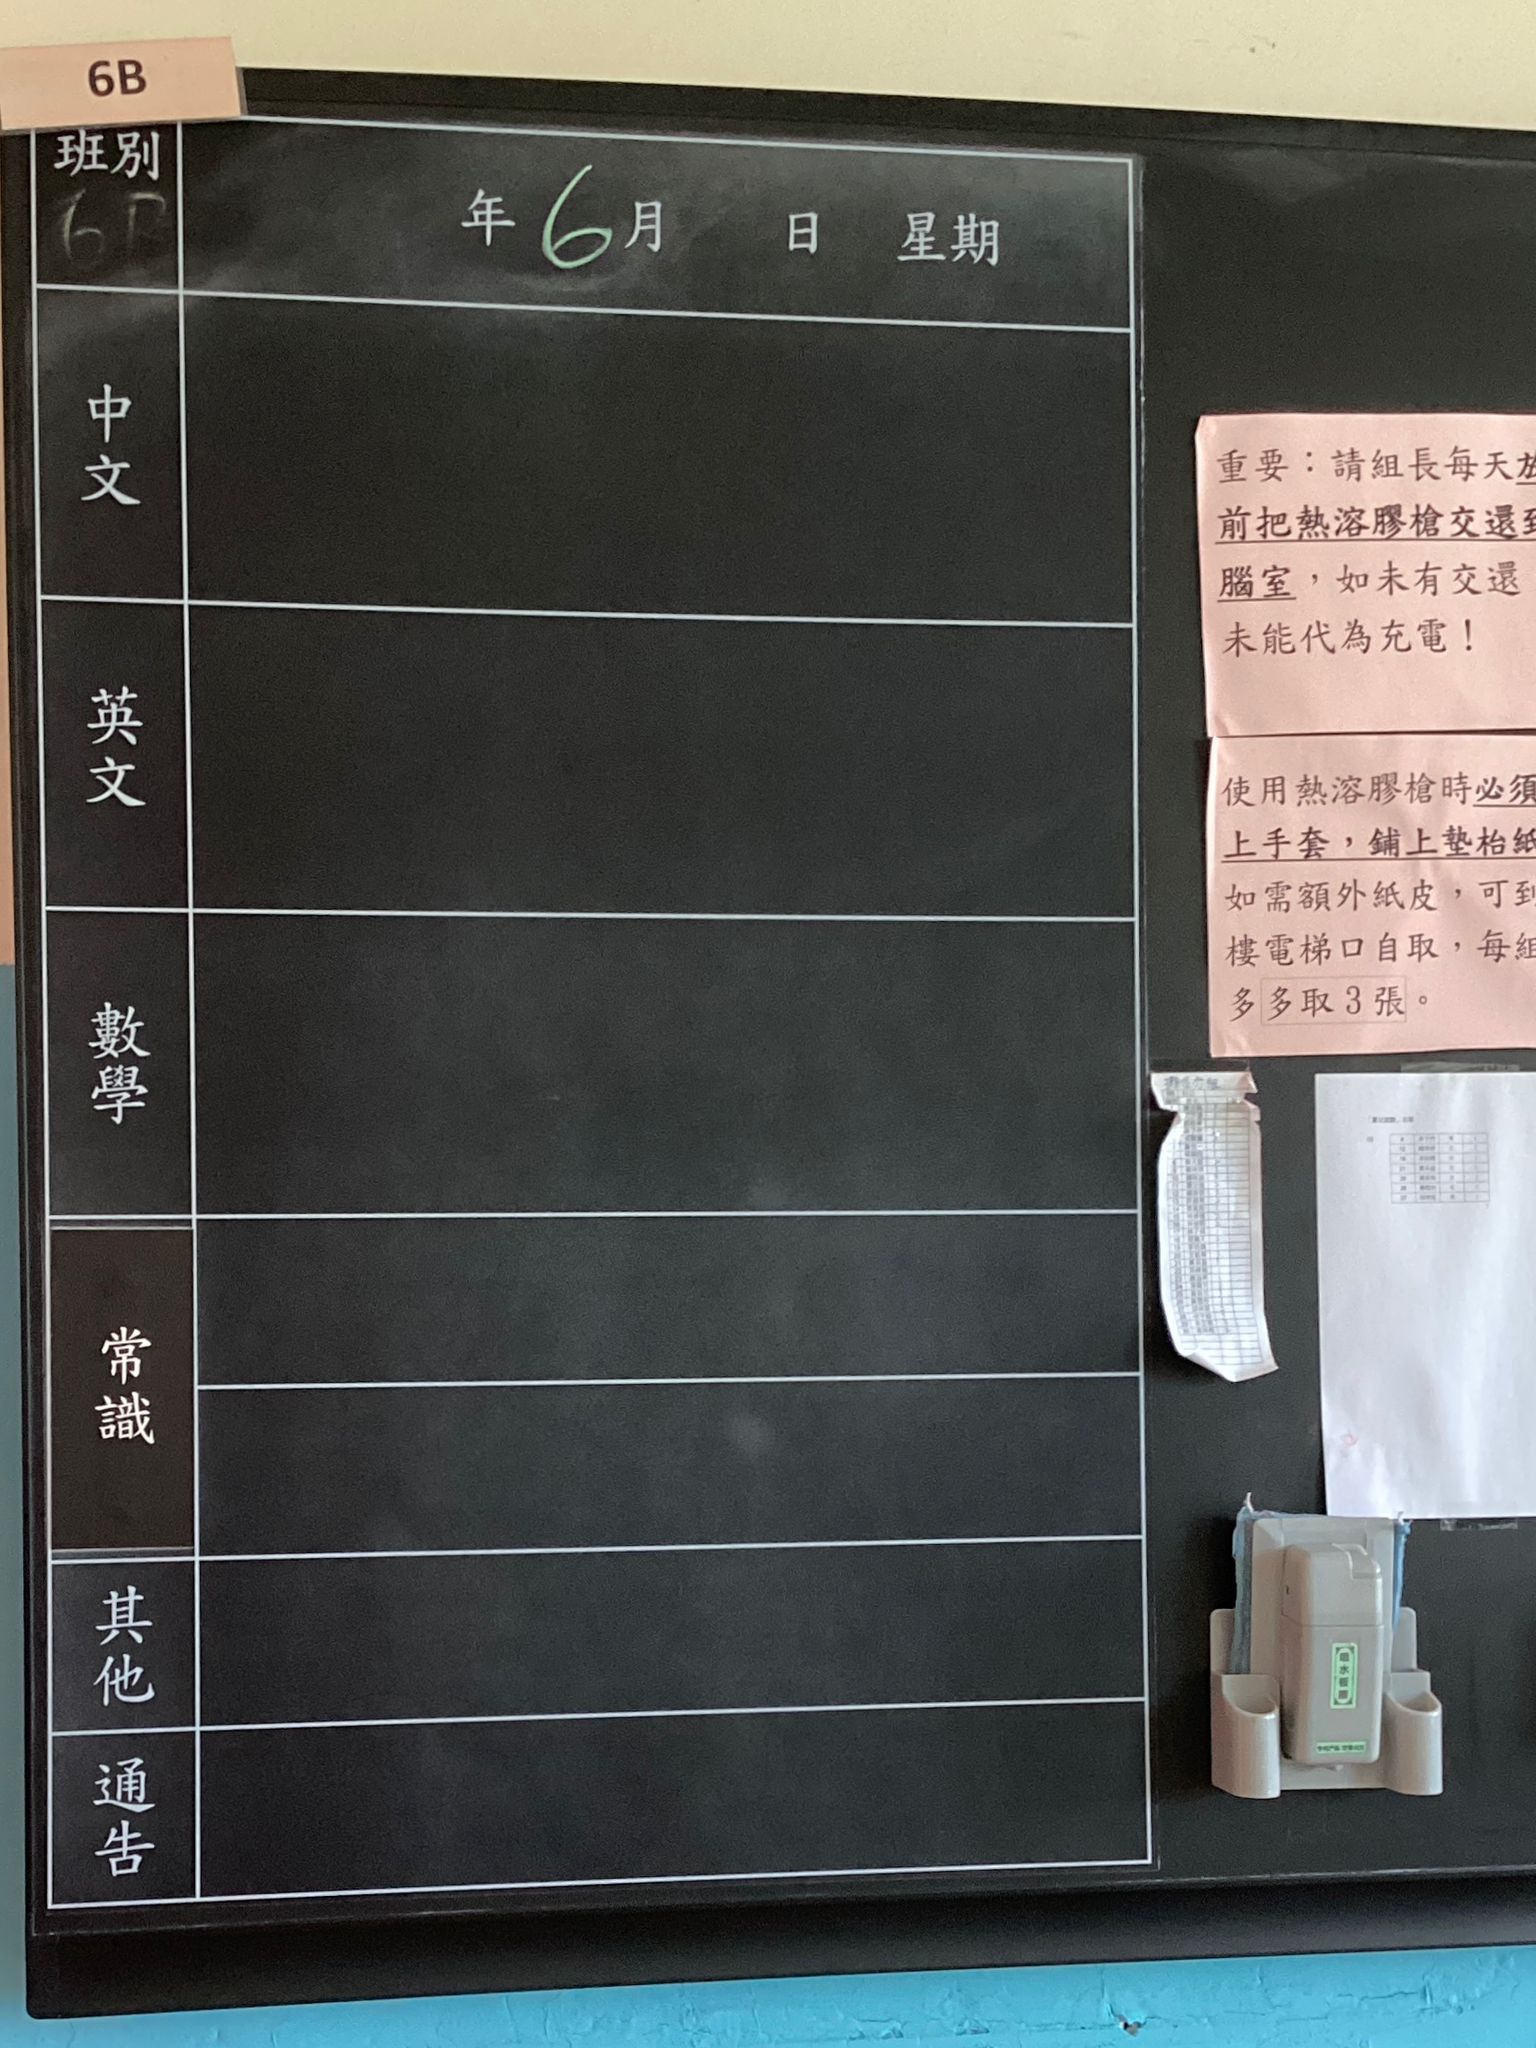 6B
班別
6B
年 6月 日 星期
中文
英文
數學
常識
其他
通告
重要：請組長每天放
前把熱溶膠槍交還到
腦室，如未有交還
未能代為充電！
使用熱溶膠槍時必須
上手套，鋪上墊枱紙
如需額外紙皮，可到
樓電梯口自取，每組
多多取3張。